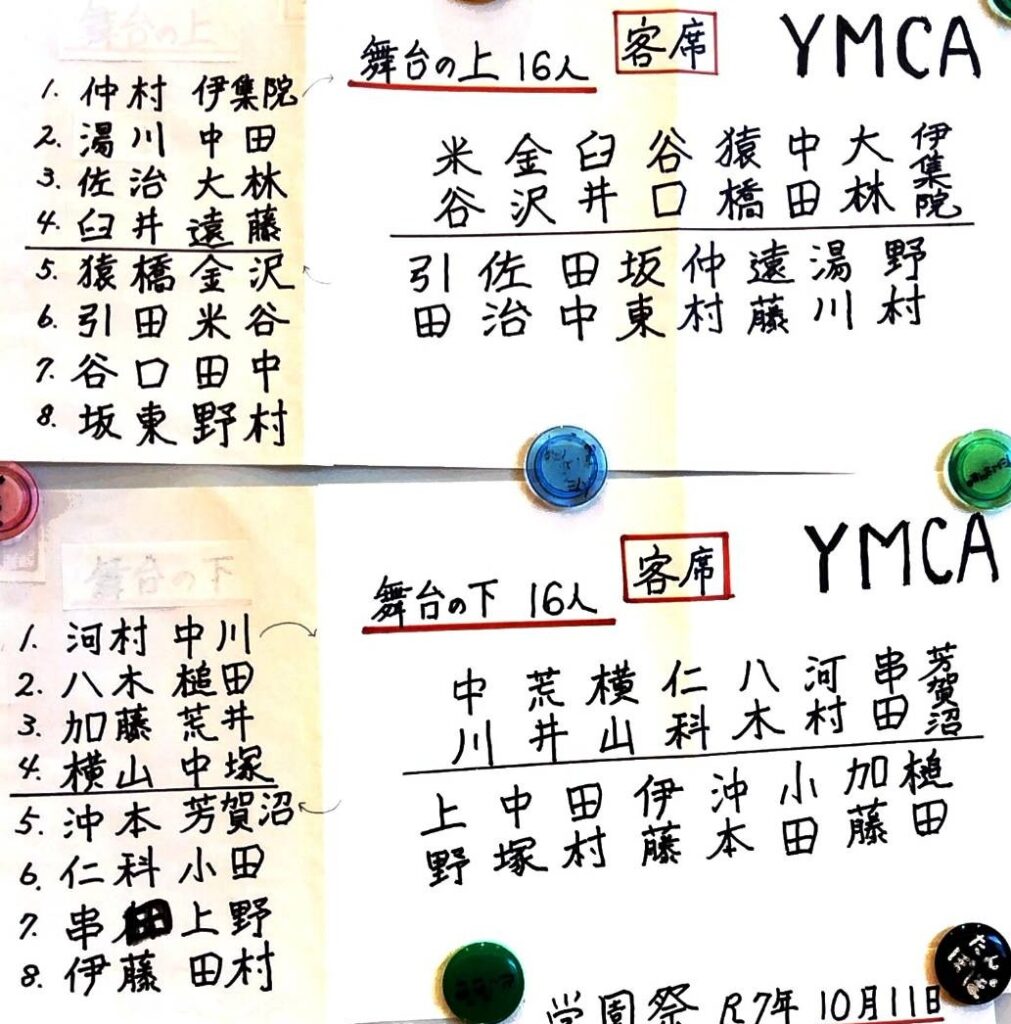 舞台の上
舞台の上 16人
客席
YMCA
1. 仲村 伊集院
2. 湯川 中田
3. 佐治 大林
4. 臼井 遠藤
5. 猿橋 金沢
6. 引田 米谷
7. 谷口 田中
8. 坂東 野村
米谷 金沢 臼井 谷口 猿橋 中田 大林 伊集院
引田 佐治 田中 坂東 仲村 遠藤 湯川 野村
舞台の下
舞台の下 16人
客席
YMCA
1. 河村 中川
2. 八木 槌田
3. 加藤 荒井
4. 横山 中塚
5. 沖本 芳賀沼
6. 仁科 小田
7. 串田 上野
8. 伊藤 田村
中川 荒井 横山 仁科 八木 河村 串田 芳賀沼
上野 中塚 田村 伊藤 沖本 小田 加藤 槌田
学園祭 R7年 10月11日